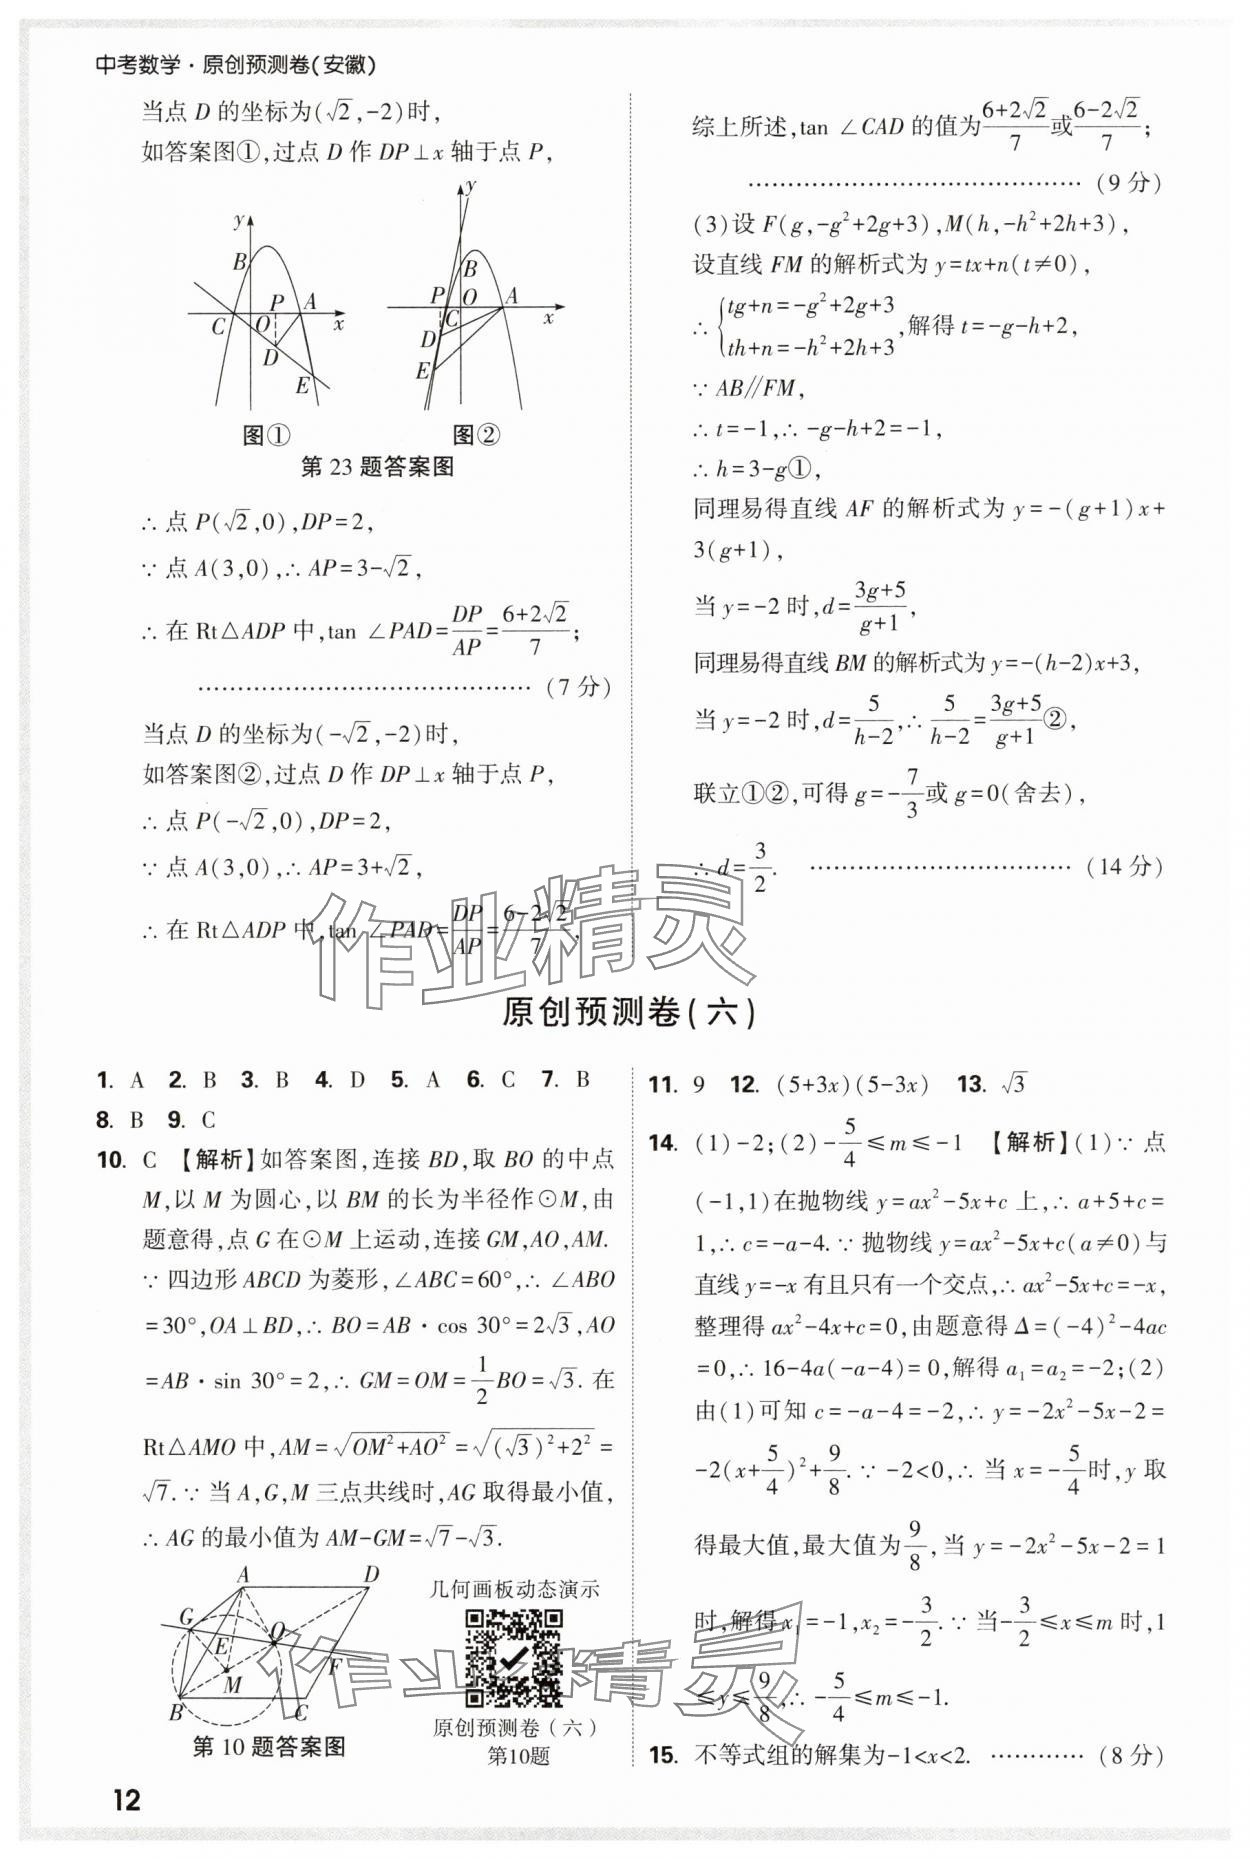 中考数学·原创预测卷(安徽)
当点 D 的坐标为(√2,-2)时,
如答案图①,过点 D 作 DP⊥x 轴于点 P,
y
B
P
A
C
O
x
D
E
图①
y
B
P
O
A
C
x
D
E
图②
第 23 题答案图
∴ 点 P(√2,0),DP=2,
∵ 点 A(3,0),∴ AP=3-√2,
∴ 在 Rt△ADP 中,tan ∠PAD=DP/AP=(6+2√2)/7;
…………………………………… (7 分)
当点 D 的坐标为(-√2,-2)时,
如答案图②,过点 D 作 DP⊥x 轴于点 P,
∴ 点 P(-√2,0),DP=2,
∵ 点 A(3,0),∴ AP=3+√2,
∴ 在 Rt△ADP 中,tan ∠PAD=DP/AP=(6-2√2)/7,
综上所述,tan ∠CAD 的值为(6+2√2)/7或(6-2√2)/7;
…………………………………… (9 分)
(3)设 F(g,-g²+2g+3),M(h,-h²+2h+3),
设直线 FM 的解析式为 y=tx+n(t≠0),
∴ {tg+n=-g²+2g+3
th+n=-h²+2h+3,解得 t=-g-h+2,
∵ AB∥FM,
∴ t=-1,∴ -g-h+2=-1,
∴ h=3-g①,
同理易得直线 AF 的解析式为 y=-(g+1)x+
3(g+1),
当 y=-2 时,d=(3g+5)/(g+1),
同理易得直线 BM 的解析式为 y=-(h-2)x+3,
当 y=-2 时,d=5/(h-2),∴ 5/(h-2)=(3g+5)/(g+1)②,
联立①②,可得 g=-7/3或 g=0(舍去),
∴ d=3/2. …………………………… (14 分)
作业精灵
原创预测卷(六)
1. A 2. B 3. B 4. D 5. A 6. C 7. B
8. B 9. C
10. C 【解析】如答案图,连接 BD,取 BO 的中点
M,以 M 为圆心,以 BM 的长为半径作⊙M,由
题意得,点 G 在⊙M 上运动,连接 GM,AO,AM.
∵ 四边形 ABCD 为菱形,∠ABC=60°,∴ ∠ABO
=30°,OA⊥BD,∴ BO=AB·cos 30°=2√3,AO
=AB·sin 30°=2,∴ GM=OM=1/2BO=√3. 在
Rt△AMO 中,AM=√(OM²+AO²)=√((√3)²+2²)=
√7.∵ 当 A,G,M 三点共线时,AG 取得最小值,
∴ AG 的最小值为 AM-GM=√7-√3.
A
D
G
E
O
F
M
B
C
第 10 题答案图
几何画板动态演示
原创预测卷(六)
第10题
11. 9 12. (5+3x)(5-3x) 13. √3
14. (1)-2;(2)-5/4≤m≤-1 【解析】(1)∵ 点
(-1,1)在抛物线 y=ax²-5x+c 上,∴ a+5+c=
1,∴ c=-a-4.∵ 抛物线 y=ax²-5x+c(a≠0)与
直线 y=-x 有且只有一个交点,∴ ax²-5x+c=-x,
整理得 ax²-4x+c=0,由题意得 Δ=(-4)²-4ac
=0,∴ 16-4a(-a-4)=0,解得 a₁=a₂=-2;(2)
由(1)可知 c=-a-4=-2,∴ y=-2x²-5x-2=
-2(x+5/4)²+9/8.∵ -2<0,∴ 当 x=-5/4时,y 取
得最大值,最大值为9/8,当 y=-2x²-5x-2=1
时,解得 x₁=-1,x₂=-3/2.∵ 当-3/2≤x≤m 时,1
≤y≤9/8,∴ -5/4≤m≤-1.
15. 不等式组的解集为-1<x<2. ………… (8 分)
作业精灵
12